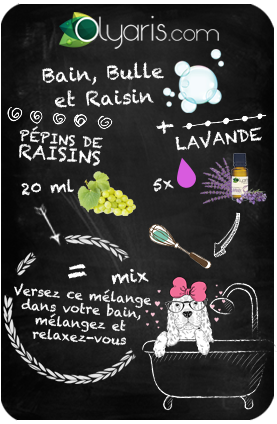 Olyaris.com
Bain, Bulle
et Raisin
+
PÉPINS DE
RAISINS
LAVANDE
20 ml
5x
=
mix
Versez ce mélange
dans votre bain,
mélangez et
relaxez-vous